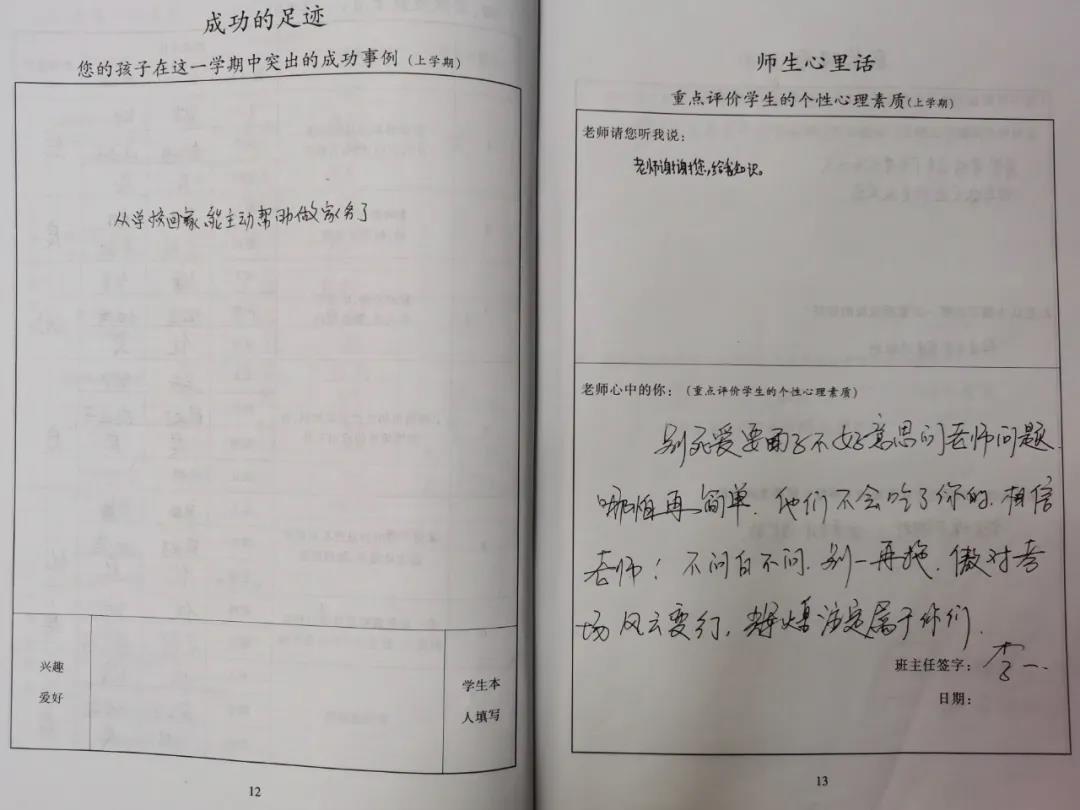 成功的足迹
您的孩子在这一学期中突出的成功事例(上学期)
从学校回家,能主动帮助做家务了
兴趣
爱好
学生本
人填写
12
师生心里话
重点评价学生的个性心理素质(上学期)
老师请您听我说:
老师谢谢您,给我知识。
老师心中的你:(重点评价学生的个性心理素质)
别死爱要面子不好意思问老师问题.
哪怕再简单.他们不会吃了你的.相信
老师!不问白不问.别一再拖.傲对考
场风云变幻,辉煌注定属于你们.
班主任签字:李一
日期:
13